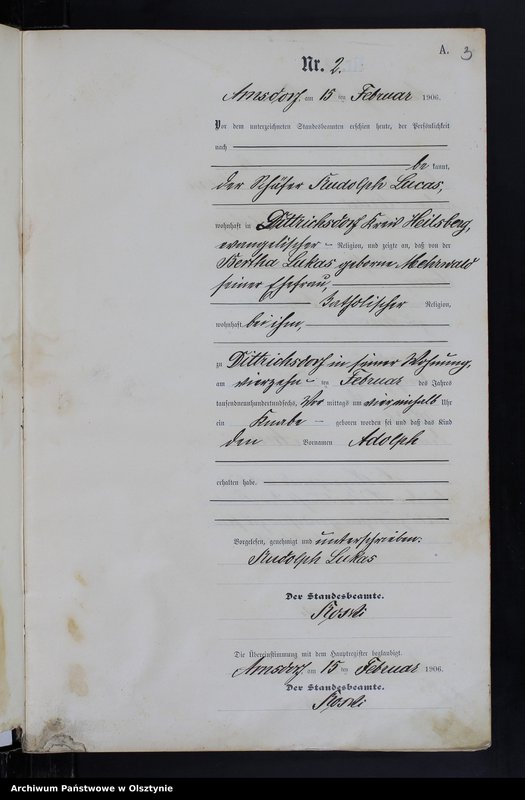 A. 3
Nr. 2.
Arnsdorf, am 15 ten Februar 1906.
Vor dem unterzeichneten Standesbeamten erschien heute, der Persönlichkeit
nach
be kannt,
der Schäfer Rudolph Lucas,
wohnhaft in Dittrichsdorf Kreis Heilsberg,
evangelischer Religion, und zeigte an, daß von der
Bertha Lukas geborne Mehrwald
seiner Ehefrau,
katholischer Religion,
wohnhaft bei ihm,
zu Dittrichsdorf in seiner Wohnung,
am vierzehn ten Februar des Jahres
tausendneunhundertundsechs, Vor mittags um Uhr
ein Knabe geboren worden sei und daß das Kind
den Vornamen Adolph
erhalten habe.
Vorgelesen, genehmigt und unterschrieben:
Rudolph Lukas
Der Standesbeamte.
Die Übereinstimmung mit dem Hauptregister beglaubigt.
Arnsdorf, am 15 ten Februar 1906.
Der Standesbeamte.
Archiwum Państwowe w Olsztynie